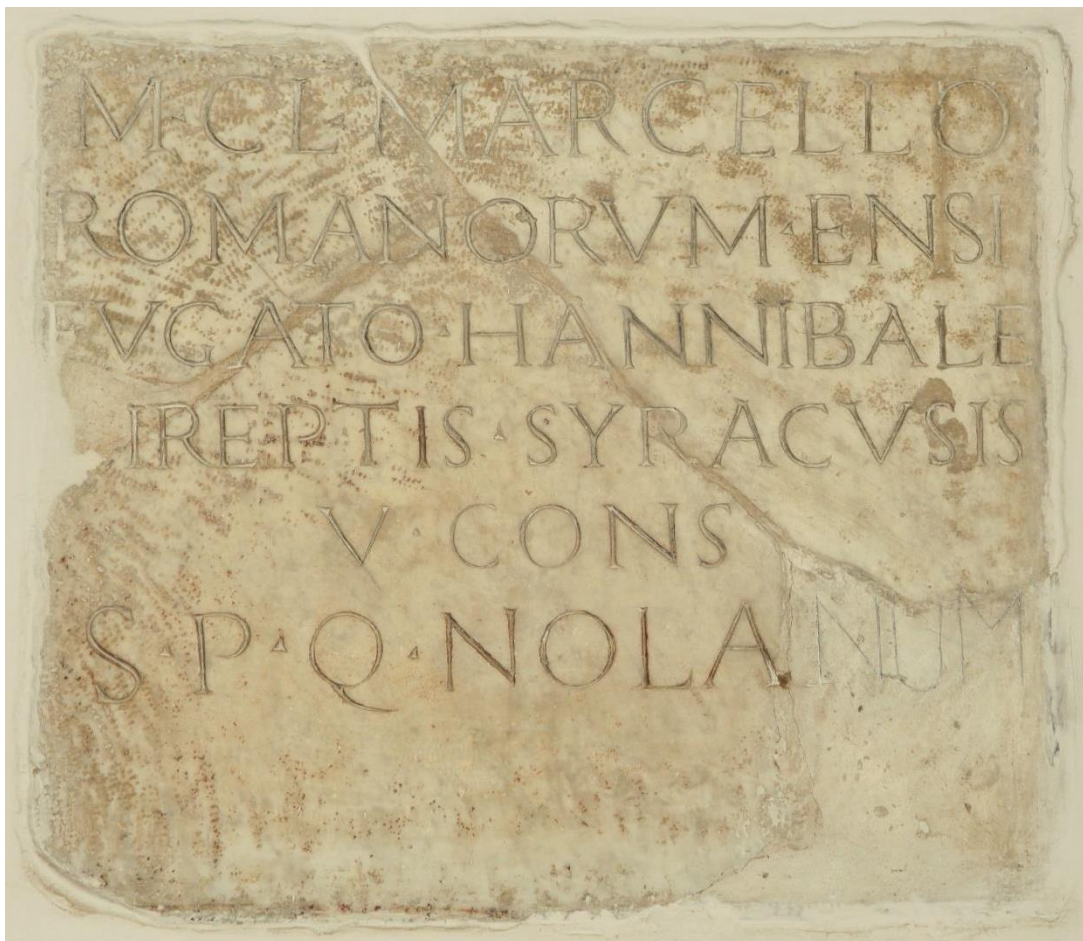 M·CL·MARCELLO
ROMANORVM·ENSI
FVGATO·HANNIBALE
IREPTIS·SYRACVSIS
V·CONS
S·P·Q·NOLANUM